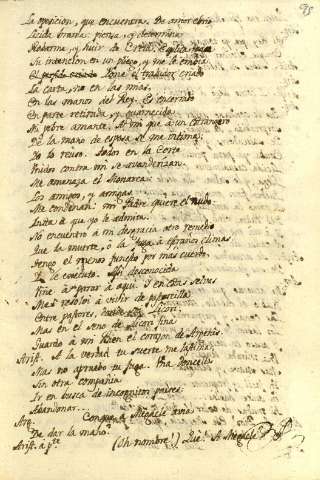 93
La oposicion, que encuentra. De amor ebrio
Licida brama: piensa, y determina
Robarme, y huir la Creta.
Su intencion en un pliego, y me le embia
El Pone el traidor criado
La carta, no en las mias.
En las manos del Rey. Es encerrado
En parte retirada, y guarnecida
Mi pobre amante. A mi que a un Extrangero
De la mano de esposa se me intima;
Yo lo reuso. Todos en la Corte
Unidos contra mi se avanderizan.
Me amenaza el Monarca.
Los amigos, y amigas
Me condenan: mi Padre quiere el nudo.
Insta a que yo le admita.
No encuentro a mi desgracia otro remedio
Que la muerte, ô la fuga a extraños climas
Tengo el menos funesto por mas cuerdo
Y le executo. Asi desconocida
Vine a parar a aqui. Y en estas selvas
Me resolvi a vivir de pastorcilla
Entre pastores, Licori:
Mas en el seno de Licori fina
Guardo a mi Bien el corazon de Argenis.
Arist. A la verdad tu suerte me lastima
Mas no apruebo tu fuga. Una Doncella
Sin otra compañia
Ir en busca de incognitos paises
Abandonar...
Arg. Conque a Megacle avia
De dar la mano?
Arist. a pte (Oh nombre!) Que! A Megacle?